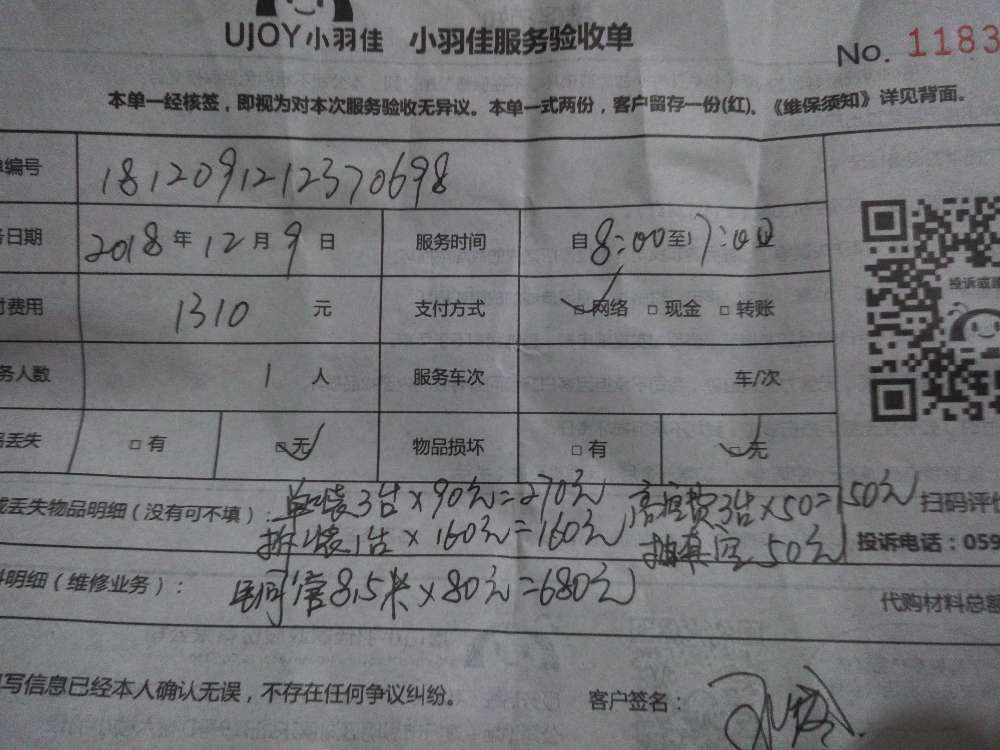 UJOY小羽佳 小羽佳服务验收单
No. 1183
本单一经核签，即视为对本次服务验收无异议。本单一式两份，客户留存一份(红)。《维保须知》详见背面。
编号 1812091212370698
日期 2018年12月9日 服务时间 自8:00至17:00
费用 1310 元 支付方式 网络 现金 转账
务人数 1 人 服务车次 车/次
丢失 有 无 物品损坏 有 无
丢失物品明细（没有可不填）： 单装3台×90元=270元 高空费3台×50=150元 扫码评
拆装1台×160元=160元 抽真空50元 投诉电话：059
明细（维修业务）： 铜管8.5米×80元=680元 代购材料总
投诉或
写信息已经本人确认无误，不存在任何争议纠纷。 客户签名：